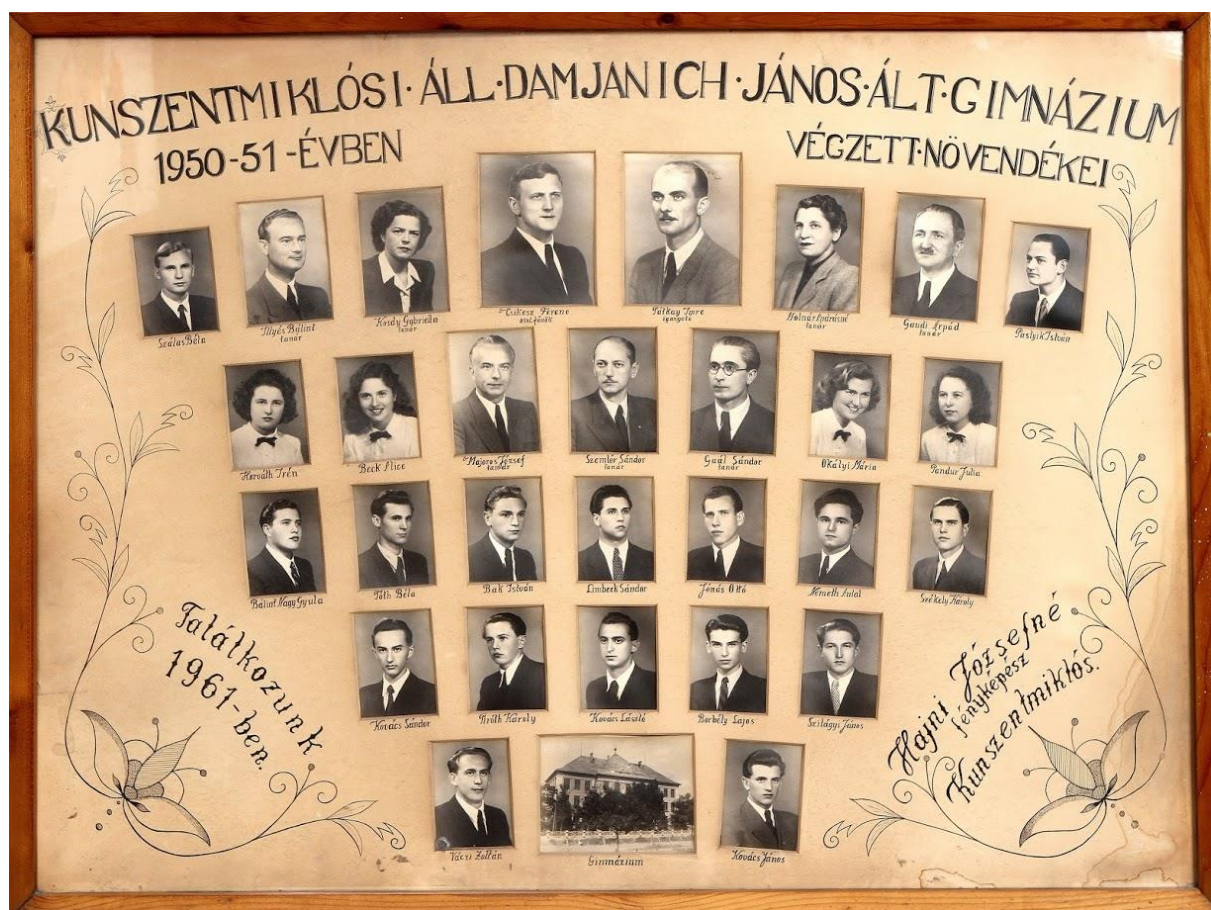 KUNSZENTMIKLÓSI·ÁLL·DAMJANICH·JÁNOS·ÁLT·GIMNÁZIUM
1950-51-ÉVBEN
VÉGZETT·NÖVENDÉKEI
Szálas Béla
Illyés Bálint
tanár
Kosdy Gabriella
tanár
Dr Csikesz Ferenc
oszt.főnök
Pátkay Imre
igazgató
Molnár
tanár
Gaudi Árpád
tanár
Paslyik István
Horváth Irén
Beck Alice
Dr Majoros József
tanár
Szemlér Sándor
tanár
Gaál Sándor
tanár
Okályi Mária
Pandur Julia
Bálint Nagy Gyula
Tóth Béla
Bak István
Limbeck Sándor
Jónás Ottó
Németh Antal
Székely Károly
Kovács Sándor
Károly
Kovács László
Borbély Lajos
Szilágyi János
Váczi Zoltán
Gimnázium
Kovács János
Találkozunk
1961-ben.
Hajni Józsefné
fényképész
Kunszentmiklós.